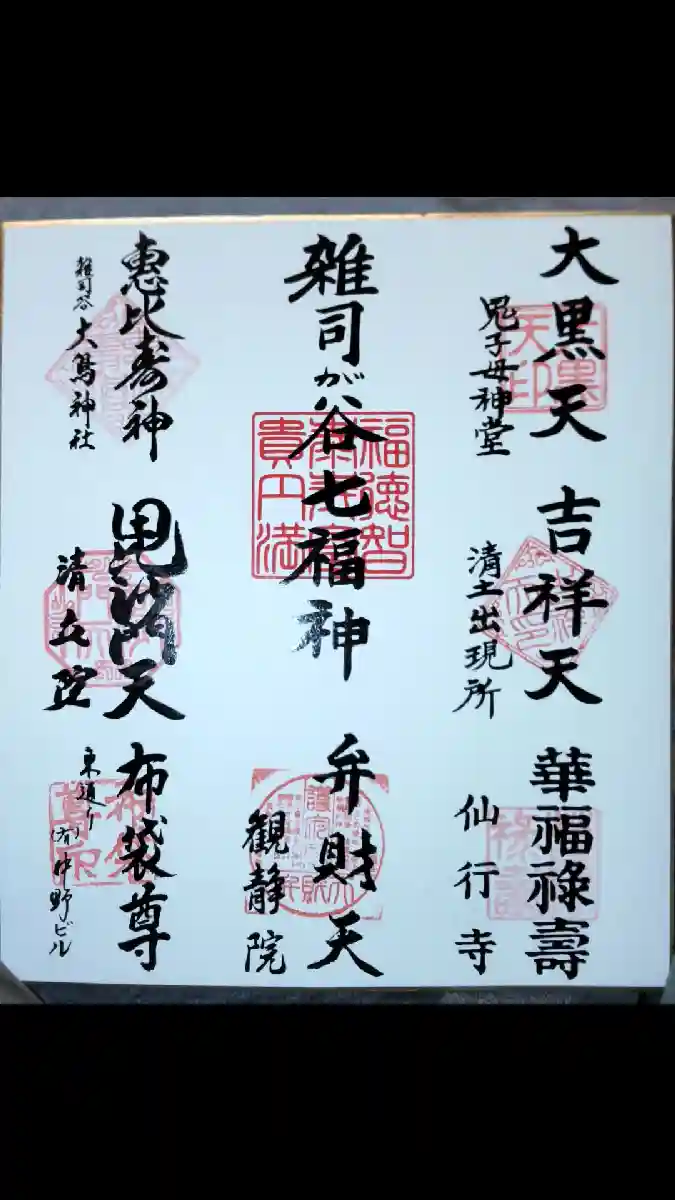 大黒天
鬼子母神堂
吉祥天
清土出現所
華福祿壽
仙行寺
雑司が谷七福神
福徳智
貴円満
弁財天
観静院
恵比寿神
雑司谷 大鳥神社
毘沙門天
清立院
布袋尊
東通り
(有)中野ビル